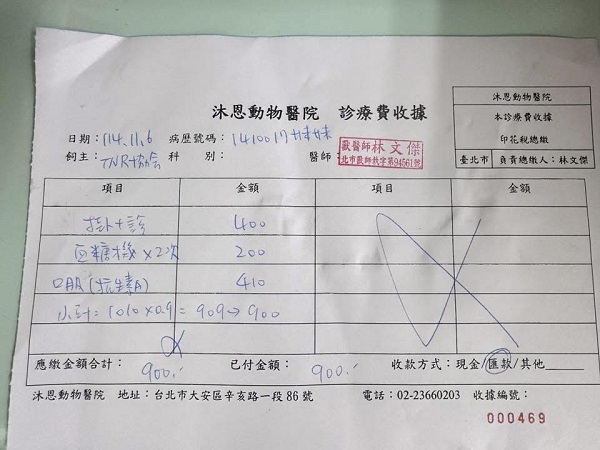 沐恩動物醫院 診療費收據
沐恩動物醫院
本診療費收據
印花稅總繳
臺北市 負責總繳人：林文傑
日期：114.11.6 病歷號碼：1410017 妹妹
飼主：TNR協會 科 別： 醫師：
獸醫師 林文傑
北市獸師執字第94561號
項目 金額 項目 金額
掛+診 400
血糖機×2次 200
口服(抗生素) 410
小計=1010×0.9=909→900
應繳金額合計：900.- 已付金額：900.- 收款方式：現金/匯款/其他
沐恩動物醫院 地址：台北市大安區辛亥路一段86號 電話：02-23660203 收據編號：
000469